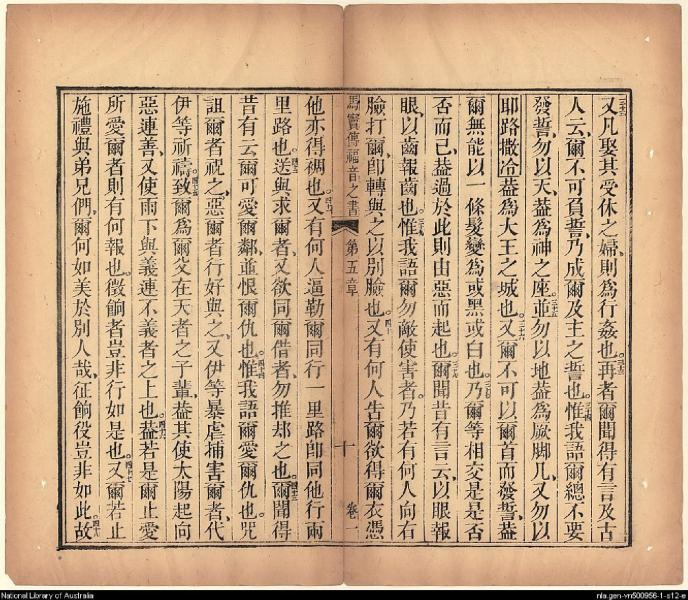 又凡娶其受休之婦則為行姦也。三十三再者爾聞得有言及古
人云爾不可負誓乃成爾及主之誓也。三十四惟我語爾總不要
發誓勿以天蓋為神之座三十五並勿以地蓋為厥脚几又勿以
耶路撒冷蓋為大王之城也。三十六又爾不可以爾首而發誓蓋
爾無能以一條髮變為或黑或白也。三十七乃爾等相交是是否
否而已蓋過於此則由惡而起也。三十八爾聞昔有言云以眼報
眼以齒報齒也。三十九惟我語爾勿敵使害者乃若有何人向右
臉打爾即轉與之以別臉也。四十又有何人告爾欲得爾衣憑
馬竇傳福音之書 第五章 十 卷一
他亦得裯也。四一又有何人逼勒爾同行一里路即同他行兩
里路也。四二送與求爾者又欲同爾借者勿推却之也。四三爾聞得
昔有云爾可愛爾鄰並恨爾仇也。四四惟我語爾愛爾仇也咒
詛爾者祝之惡爾者行好與之又伊等暴虐捕害爾者代
伊等祈禱四五致爾為爾父在天者之子輩蓋其使太陽起向
惡連善又使雨下與義連不義者之上也。四六蓋若是爾止愛
所愛爾者則有何報也徵餉者豈非行如是也。四七又爾若止
施禮與弟兄們爾何如美於別人哉征餉役豈非如此四八故
National Library of Australia
nla.gen-vn500956-1-s12-e